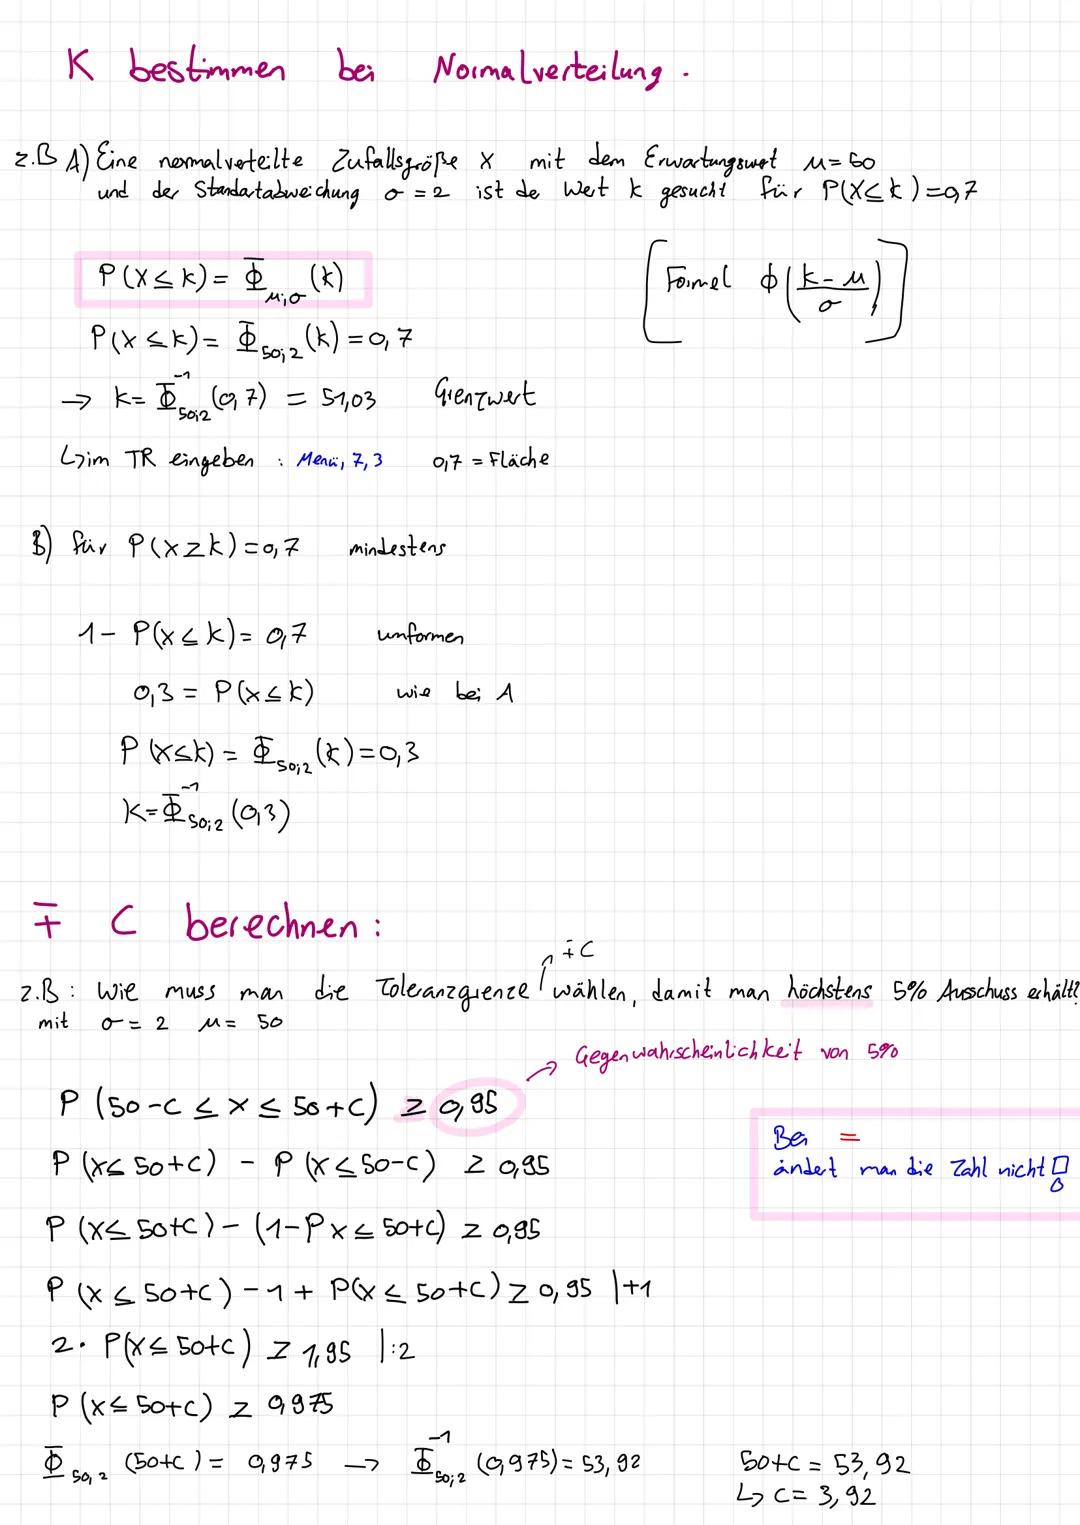 K bestimmen bei Normalverteilung.
z.B A) Eine normalverteilte Zufallsgröße X mit dem Erwartungswert μ=50
und der Standartabweichung σ=2 ist de Wert k gesucht für P(X≤k)=0,7
P(X≤k)= Φμ;σ (k)
[Formel Φ(k-μ/σ)]
P(X≤k)= Φ50;2 (k)=0,7
→ k= Φ⁻¹50;2 (0,7) = 51,03 Grenzwert
↳im TR eingeben : Menü, 7, 3 0,7 = Fläche
B) für P(X≥k)=0,7 mindestens
1- P(X≤k)= 0,7 umformen
0,3 = P(X≤k) wie bei A
P(X≤k) = Φ50;2 (k)=0,3
K=Φ⁻¹50;2 (0,3)
∓ C berechnen:
∓C
z.B: Wie muss man die Toleranzgrenze wählen, damit man höchstens 5% Ausschuss erhält?
mit σ=2 μ= 50
Gegenwahrscheinlichkeit von 5%
P (50-C ≤ X ≤ 50+C) ≥ 0,95
Bei =
ändert man die Zahl nicht!
P (X≤ 50+C) - P (X≤50-C) ≥ 0,95
P (X≤ 50+C)-(1-P X≤ 50+C) ≥ 0,95
P (X≤ 50+C)-1+ P(X≤ 50+C)≥ 0,95 |+1
2· P(X≤ 50+C) ≥ 1,95 |:2
P (X≤ 50+C) ≥ 0,975
Φ50,2 (50+C)= 0,975 → Φ⁻¹50;2 (0,975)= 53,92 50+C = 53,92
↳ C= 3,92